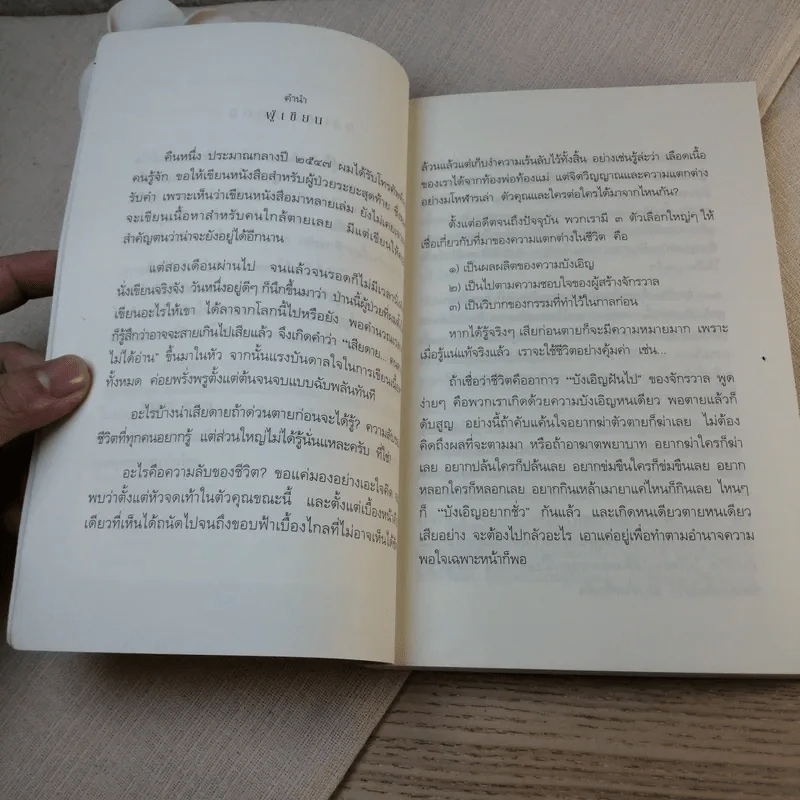 คำนำ
ผู้เขียน
คืนหนึ่ง ประมาณกลางปี ๒๕๔๗ ผมได้รับโทรศัพท์
คนรู้จัก ขอให้เขียนหนังสือสำหรับผู้ป่วยระยะสุดท้าย
รับคำ เพราะเห็นว่าเขียนหนังสือมาหลายเล่ม ยังไม่เคย
จะเขียนเนื้อหาสำหรับคนใกล้ตายเลย มีแต่เขียนให้
สำคัญตนว่าน่าจะยังอยู่ได้อีกนาน
แต่สองเดือนผ่านไป จนแล้วจนรอดก็ไม่มีเวลา
นั่งเขียนจริงจัง วันหนึ่งอยู่ดีๆ ก็นึกขึ้นมาว่า ป่านนี้ผู้ป่วยที่
เขียนอะไรให้เขา ได้ลาจากโลกนี้ไปหรือยัง พอคำนวณ
ก็รู้สึกว่าอาจจะสายเกินไปเสียแล้ว จึงเกิดคำว่า “เสียดาย...
ไม่ได้อ่าน” ขึ้นมาในหัว จากนั้นแรงบันดาลใจในการเขียน
ทั้งหมด ค่อยพรั่งพรูตั้งแต่ต้นจนจบแบบฉับพลันทันที
อะไรบ้างน่าเสียดายถ้าด่วนตายก่อนจะได้รู้? ความลับ
ชีวิตที่ทุกคนอยากรู้ แต่ส่วนใหญ่ไม่ได้รู้นั่นแหละครับ ที่ใช่
อะไรคือความลับของชีวิต? ขอแค่มองอย่างเอะใจคิด
พบว่าตั้งแต่หัวจดเท้าในตัวคุณขณะนี้ และตั้งแต่เบื้องหน้า
เดียวที่เห็นได้ถนัดไปจนถึงขอบฟ้าเบื้องไกลที่ไม่อาจเห็นได้
ล้วนแล้วแต่เก็บงำความเร้นลับไว้ทั้งสิ้น อย่างเช่นรู้ล่ะว่า เลือดเนื้อ
ของเราได้จากท้องพ่อท้องแม่ แต่จิตวิญญาณและความแตกต่าง
อย่างมโหฬารเล่า ตัวคุณและใครต่อใครได้มาจากไหนกัน?
ตั้งแต่อดีตจนถึงปัจจุบัน พวกเรามี ๓ ตัวเลือกใหญ่ๆ ให้
เชื่อเกี่ยวกับที่มาของความแตกต่างในชีวิต คือ
๑) เป็นผลผลิตของความบังเอิญ
๒) เป็นไปตามความชอบใจของผู้สร้างจักรวาล
๓) เป็นวิบากของกรรมที่ทำไว้ในกาลก่อน
หากได้รู้จริงๆ เสียก่อนตายก็จะมีความหมายมาก เพราะ
เมื่อรู้แน่แท้จริงแล้ว เราจะใช้ชีวิตอย่างคุ้มค่า เช่น...
ถ้าเชื่อว่าชีวิตคืออาการ “บังเอิญฝันไป” ของจักรวาล พูด
ง่ายๆ คือพวกเราเกิดด้วยความบังเอิญหนเดียว พอตายแล้วก็
ดับสูญ อย่างนี้ถ้าคับแค้นใจอยากฆ่าตัวตายก็ฆ่าเลย ไม่ต้อง
คิดถึงผลที่จะตามมา หรือถ้าอาฆาตพยาบาท อยากฆ่าใครก็ฆ่า
เลย อยากปล้นใครก็ปล้นเลย อยากข่มขืนใครก็ข่มขืนเลย อยาก
หลอกใครก็หลอกเลย อยากกินเหล้าเมายาแค่ไหนก็กินเลย ไหนๆ
ก็ “บังเอิญอยากชั่ว” กันแล้ว และเกิดหนเดียวตายหนเดียว
เสียอย่าง จะต้องไปกลัวอะไร เอาแค่อยู่เพื่อทำตามอำนาจความ
พอใจเฉพาะหน้าก็พอ